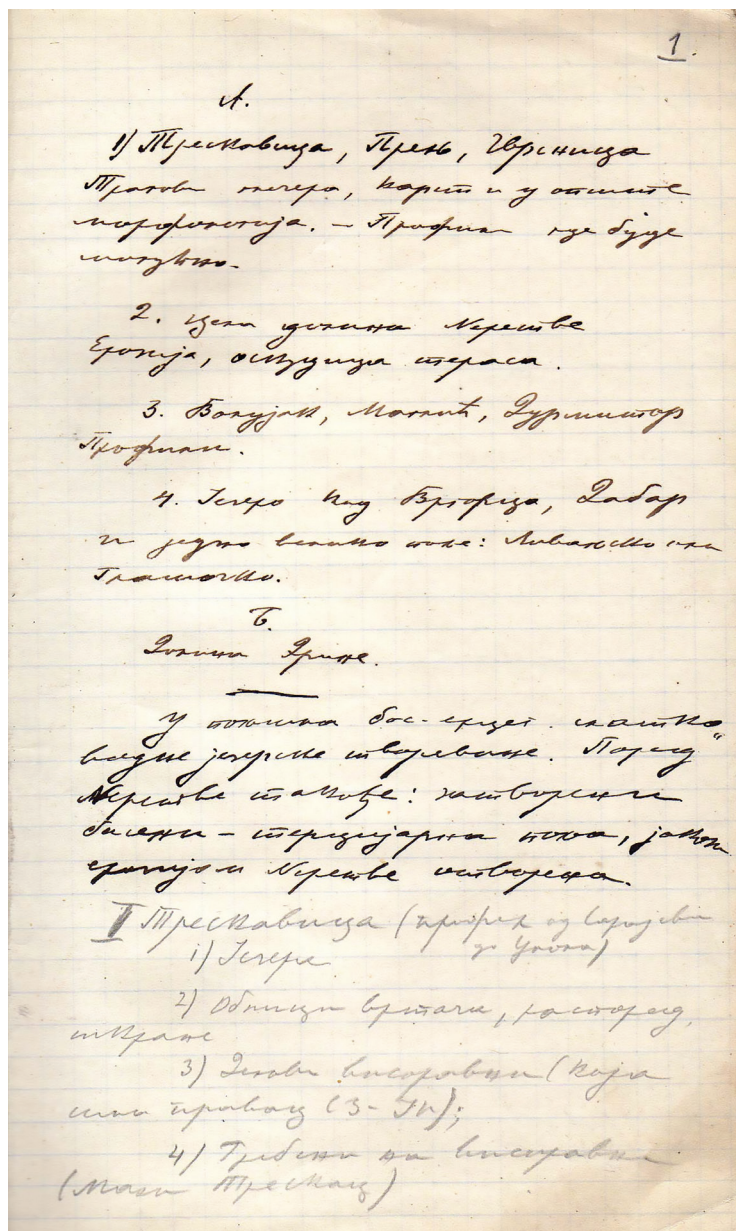 1.
А.
1) Трескавица, Прењ, Чврсница
Трагови глечера, карст и у опште
морфологија. – Профили где буде
могућно.
2. Цела долина Неретве
Ерозија, оскудица тераса.
3. Волујак, Маглић, Дурмитор
Профили.
4. Језеро код Вргорца, Дабар
и једно велико поље: Ливањско или
Гламочко.
Б.
Долина Дрине.
У пољима бос-херцег. слатко-
водне језерске творевине. Поред
Неретве такође: затворени
басени – терцијарна поља, јаком
ерозијом Неретве отворена.
I Трескавица (профил од Сарајева
до Улога)
1) Језера
2) Облици вртача, распоред,
шкрапе
3) Делови висоравни (која
има правац (З-ЈИ);
4) Гребени на висоравни
(Мали Трескац)